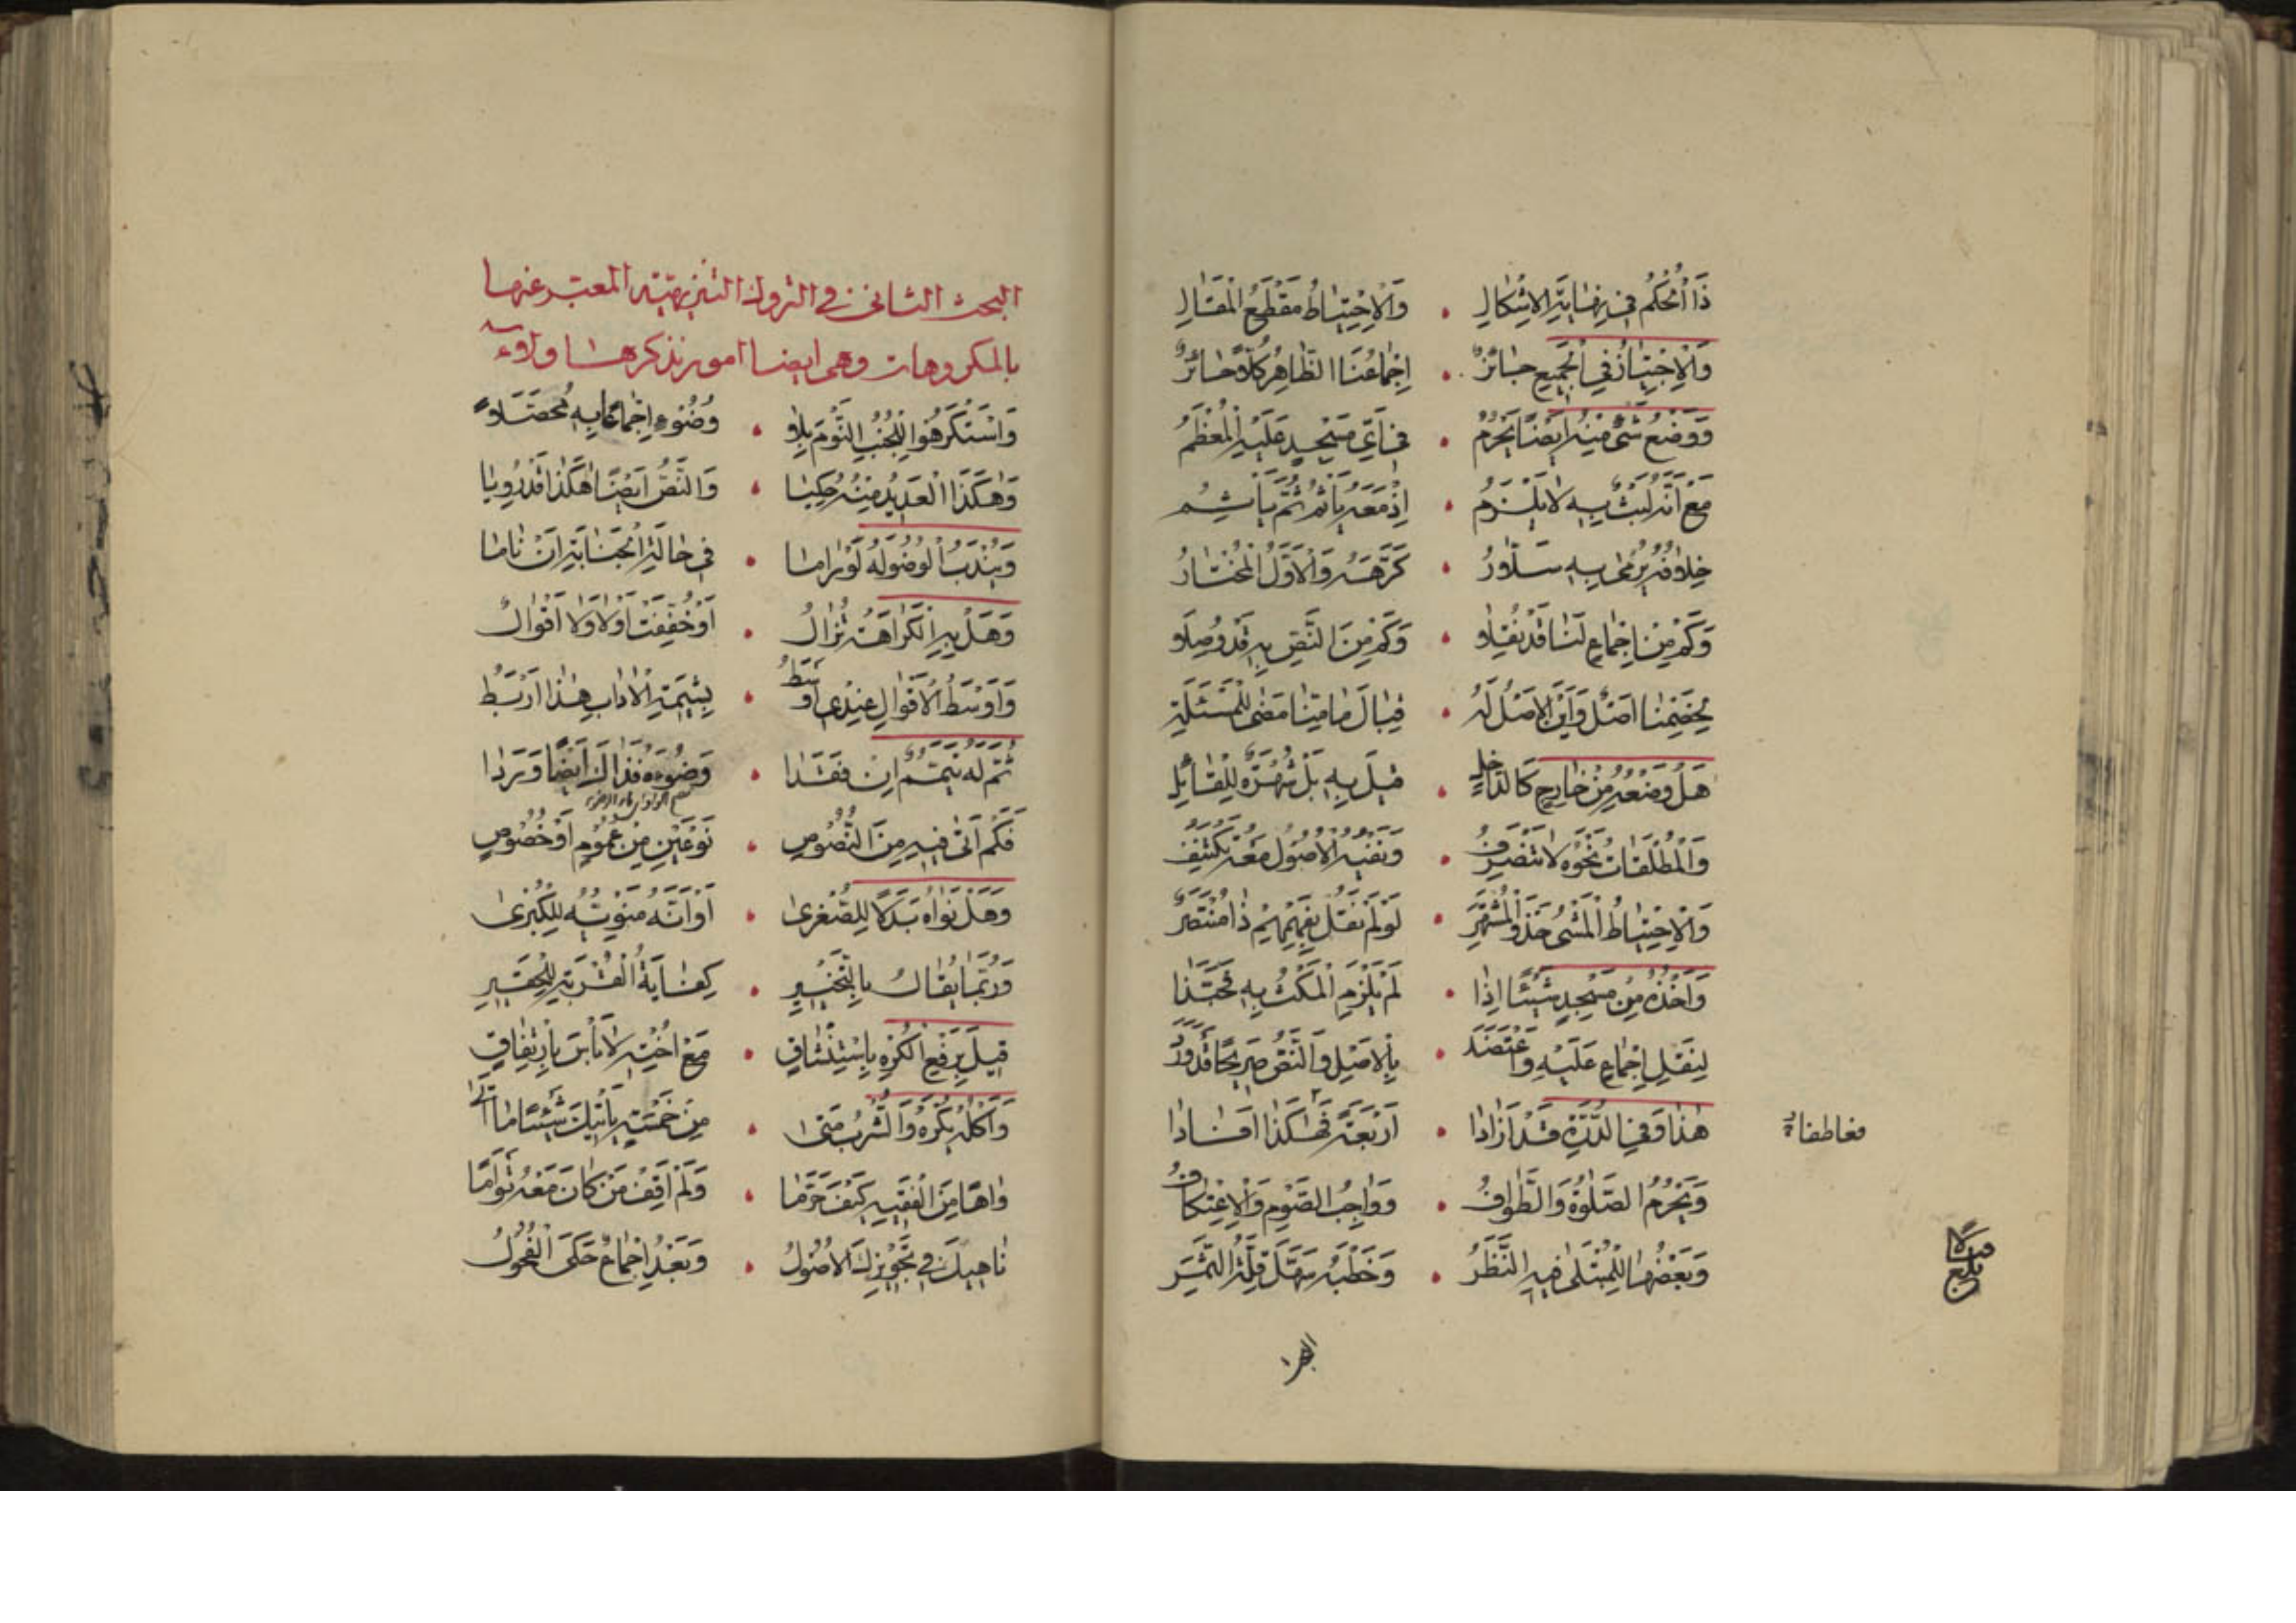 ذَا الْحُكْمُ فِي نِهَايَةِ الْاِشْكَالِ • وَالْاِحْتِيَاطُ مَقْطَعُ الْمَقَالِ
وَالْاِجْتِيَازُ فِي الْجَمِيعِ جَائِزٌ • اِجْمَاعُنَا الظَّاهِرُ كُلًّا حَائِزٌ
وَوَضْعُ شَيْءٍ مِنْهُ اَيْضًا يَحْرُمُ • فِي اَيِّ مَسْجِدٍ عَلَيْهِ الْمُعْظَمُ
مَعْ اَنَّهُ لَبْثٌ بِهِ لَا يَلْزَمُ • اِذْ مَعَهُ يَأْثَمُ ثُمَّ يَأْثَمُ
خِلَافُهُ يُرْمٰى بِهِ سَلَّارُ • كَرَّهَهُ وَالْاَوَّلُ الْمُخْتَارُ
وَكَمْ مِنْ اِجْمَاعٍ لَنَا قَدْ نُقِلَا • وَكَمْ مِنَ النَّصِّ بِهِ قَدْ وُصِلَا
لِخَصْمِنَا اَصْلٌ وَاَيْنَ الْاَصْلُ لَهُ • قِبَالَ مَا مِنَّا مَضٰى لِلْمَسْئَلَةِ
هَلْ وَضْعُهُ مِنْ خَارِجٍ كَالدَّاخِلِ • قِيلَ بِهِ بَلْ شُهْرَةٌ لِلْقَائِلِ
وَالْمُطْلَقَاتُ نَحْوُهُ لَا تَنْصَرِفُ • وَنَفْيُهُ الْاُصُولُ مَعْهُ تَكْتَنِفُ
وَالْاِحْتِيَاطُ الْمَشْيُ حَذْوَ الْمُشْتَهَرِ • لَوْ لَمْ نَقُلْ بِفَهْمِهِمْ ذَا مُنْتَصَرٌ
وَاَخْذُهُ مِنْ مَسْجِدٍ شَيْئًا اِذَا • لَمْ يَلْزَمِ الْمَكْثُ بِهِ فَحَبَّذَا
لِنَقْلِ اِجْمَاعٍ عَلَيْهِ وَاعْتَضَدَ • بِالْاَصْلِ وَالنَّصُّ صَرِيحًا قَدْ وَرَدَ
هٰذَا وَفِي الدُّرَّةِ قَدْ اَزَادَا • اَرْبَعَةً فَهٰكَذَا اَفَادَا
وَيَحْرُمُ الصَّلٰوةُ وَالطَّوَافُ • وَوَاجِبُ الصَّوْمِ وَالْاِعْتِكَافُ
وَبَعْضُهَا لِلْمُبْتَلٰى فِيهِ النَّظَرُ • وَخَطْبُهُ سَهْلٌ قِلَّةُ الثَّمَرِ
البحث الثانى فى التروك التنزيهيّة المعبّر عنها
بالمكروهات وهى ايضا امور نذكرها ولاءً
وَاسْتَكْرَهُوا لِلْجُنُبِ النَّوْمَ بِلَا • وُضُوءٍ اِجْمَاعًا بِهِ مُحَصَّلًا
وَهٰكَذَا الْعَدِيدُ مِنْهُ حُكِيَا • وَالنَّصُّ اَيْضًا هٰكَذَا قَدْ رُوِيَا
وَيُنْدَبُ الْوُضُوءُ لَهُ لَوْ رَامَا • فِي حَالَةِ الْجَنَابَةِ اَنْ نَامَا
وَهَلْ بِهِ الْكَرَاهَةُ تُزَالُ • اَوْ خُفِّفَتْ اَوْ لَا وَلَا اَقْوَالُ
وَاَوْسَطُ الْاَقْوَالِ عِنْدِي اَوْسَطُ • بِشِيمَةِ الْاٰدَابِ هٰذَا اَرْبَطُ
ثُمَّ لَهُ تَيَمُّمٌ اِنْ فَقَدَا • وَضُوءَهُ فَذَاكَ اَيْضًا وَرَدَا
فَكَمْ اَتٰى فِيهِ مِنَ النُّصُوصِ • نَوْعَيْنِ مِنْ عُمُومٍ اَوْ خُصُوصٍ
وَهَلْ نَوَاهُ بَدَلًا لِلصُّغْرٰى • اَوْ اَنَّهُ مَنْوِيَّةٌ لِلْكُبْرٰى
وَرُبَّمَا يُقَالُ بِالتَّخْيِيرِ • كِفَايَةُ الْقُرْبَةِ لِلْحَقِيرِ
قِيلَ بِرَفْعِ الْكُرْهِ بِاسْتِنْشَاقٍ • مَعْ اُخْتِهِ لَا بَأْسَ بِارْتِفَاقٍ
وَاَكْلُهُ يُكْرَهُ وَالشُّرْبُ مَتٰى • مِنْ خَمْسَةٍ يَأْتِيكَ شَيْئًا مَا اَتٰى
وَاهًا مِنَ الْفَقِيهِ كَيْفَ حَرَّمَا • وَلَمْ اَقِفْ مَنْ كَانَ مَعْهُ تَوْأَمًا
نَاهِيكَ فِي تَجْوِيزِكَ الْاُصُولُ • وَبَعْدُ اِجْمَاعٌ حَكَى الْفُحُولُ